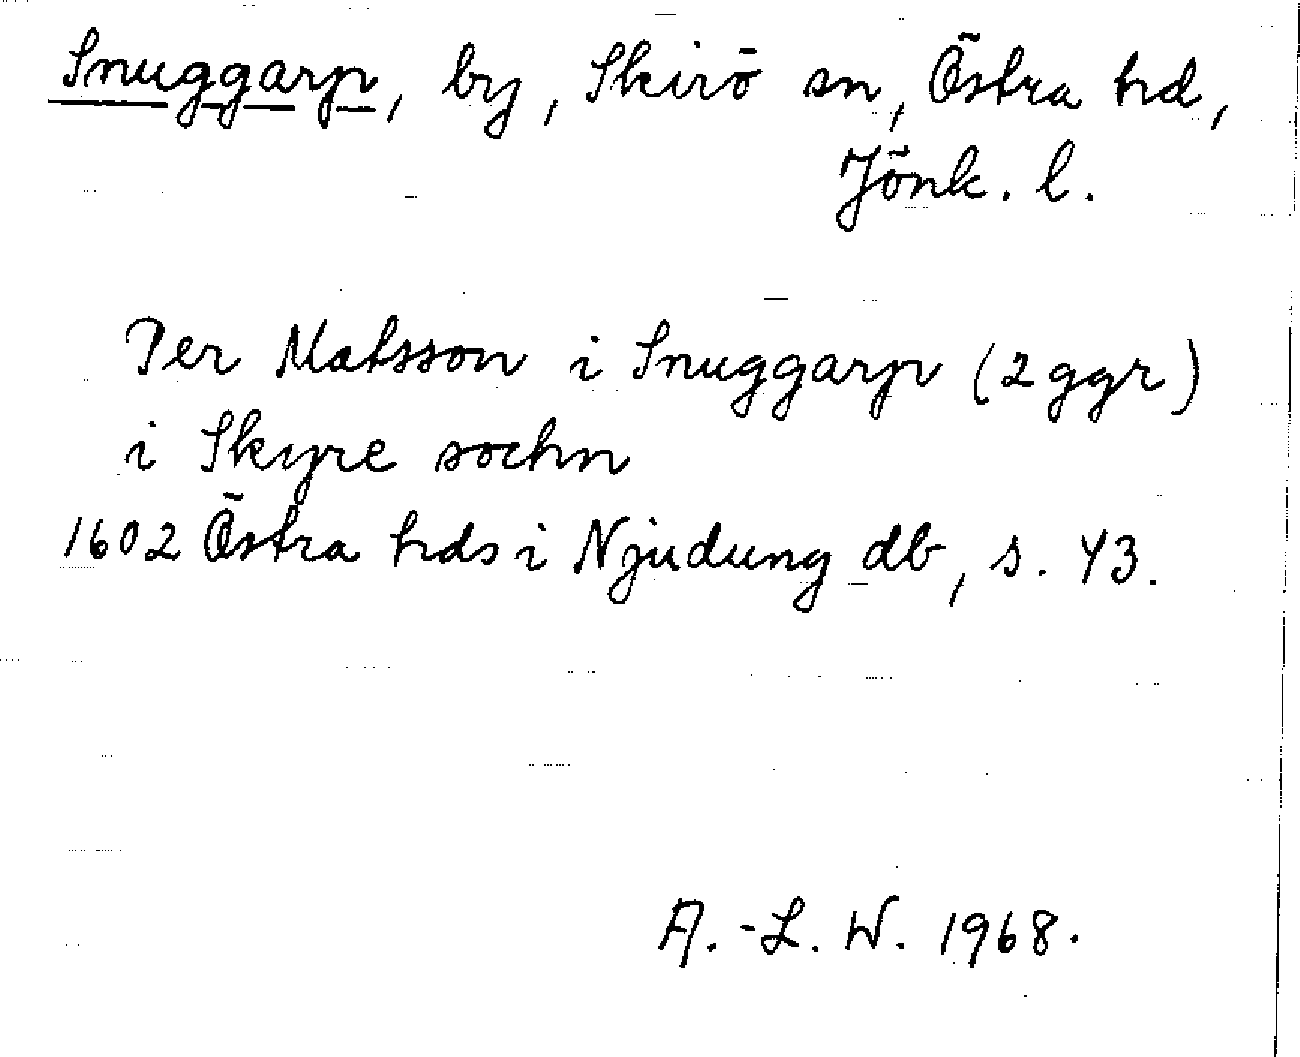 Snuggarp, by, Skirö sn, Östra hd,
Jönk. l.
Per Matsson i Snuggarp (2 ggr)
i Skyre sochn
1602 Östra hds i Njudung db, s. 43.
A.-L. W. 1968.